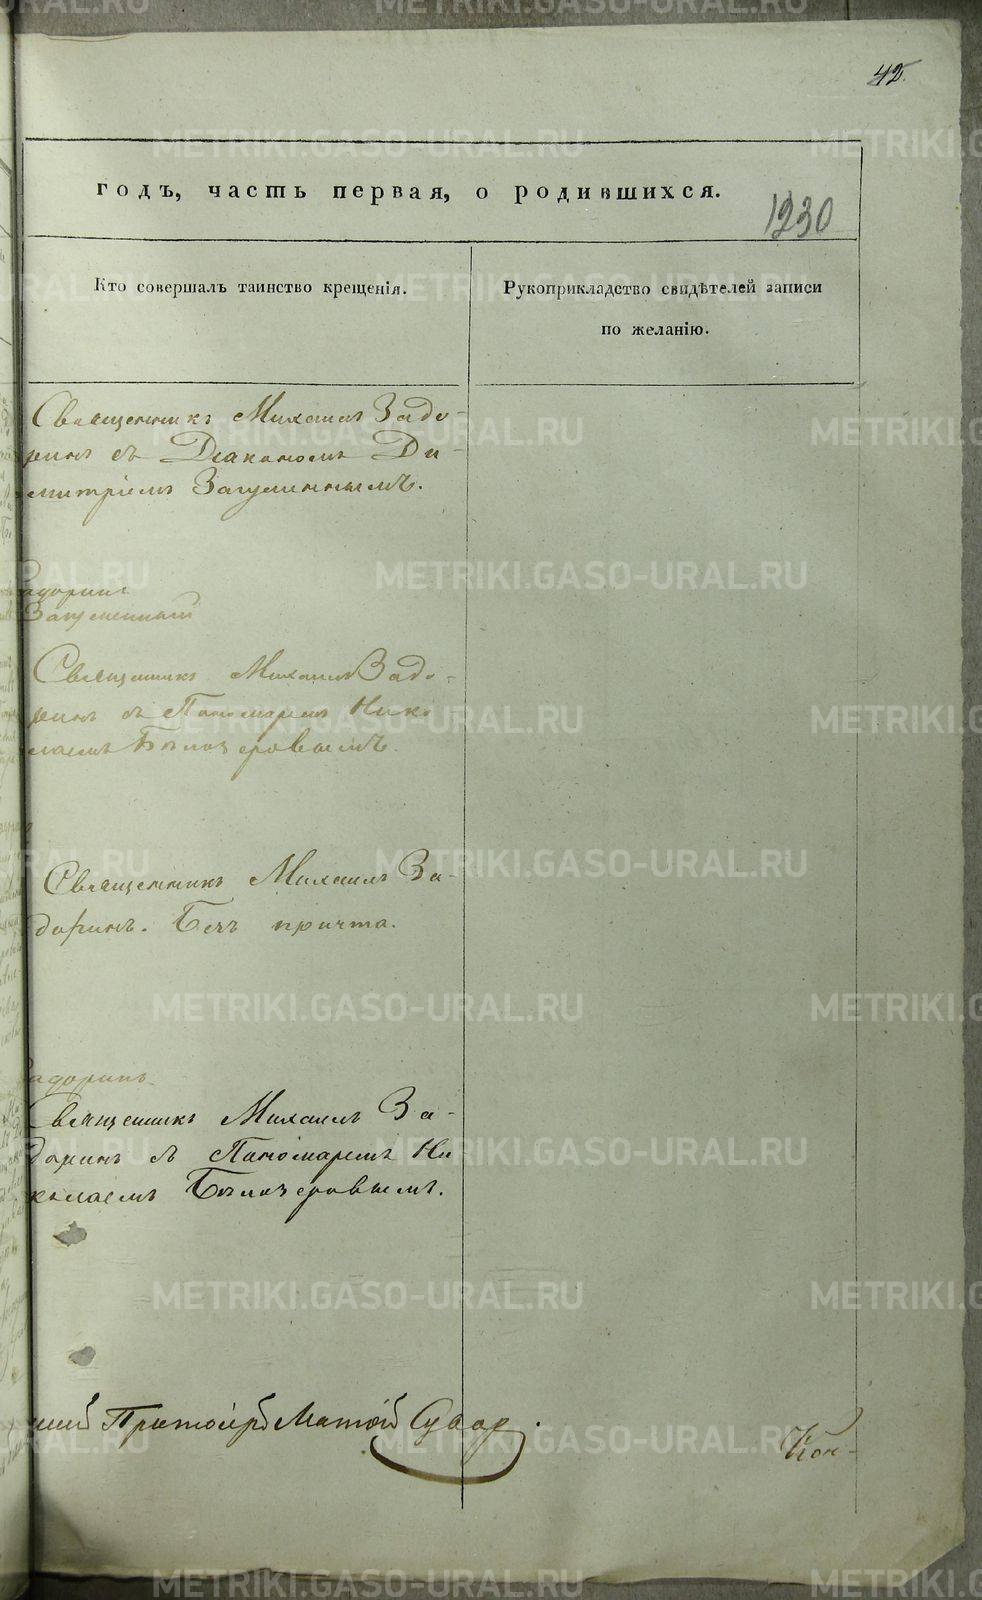 42
годъ, часть первая, о родившихся.
1230
Кто совершалъ таинство крещенія.
Рукоприкладство свидѣтелей записи
по желанію.
Священникъ Михаилъ Задо-
ринъ съ Діакономъ Ди-
митріемъ Загуменнымъ.
Задоринъ
Загуменный
Священникъ Михаилъ Задо-
ринъ съ Пономаремъ Нико
лаемъ Бѣлозеровымъ.
Священникъ Михаилъ За-
доринъ. Безъ причта.
Задоринъ
Священникъ Михаилъ За-
доринъ съ Пономаремъ Ни
колаемъ Бѣлозеровымъ.
Протоіерей
METRIKI.GASO-URAL.RU